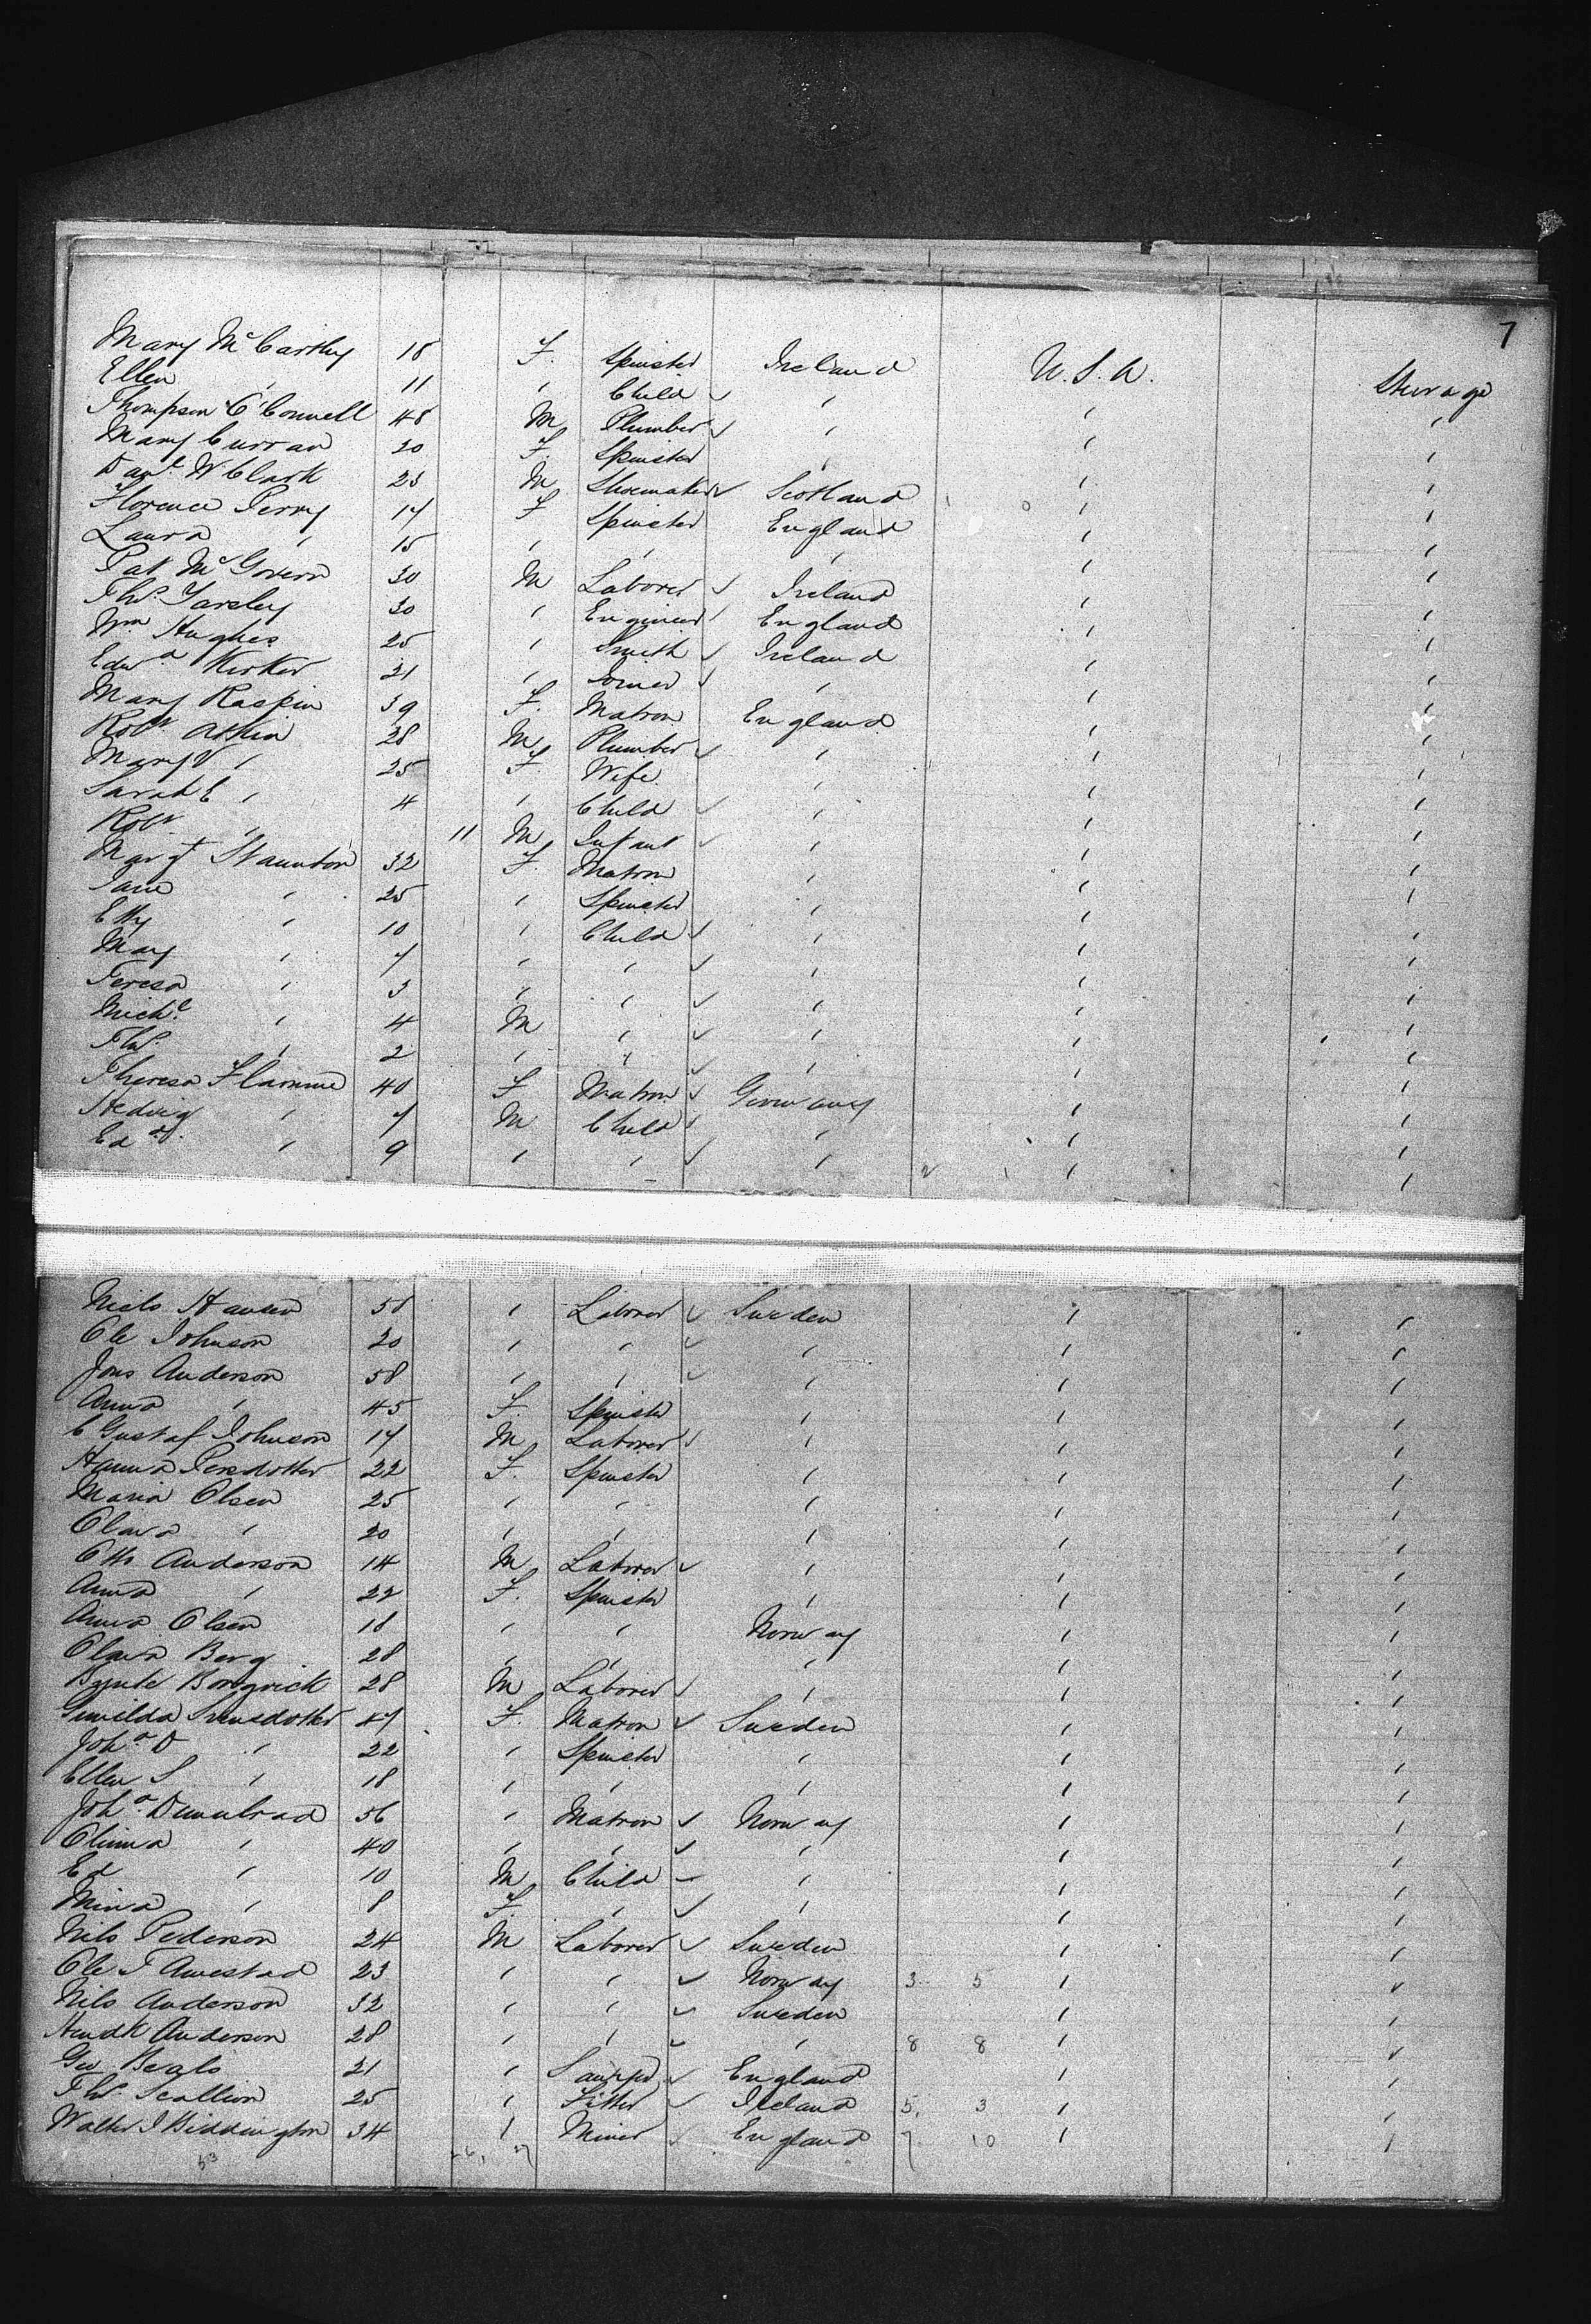 7
Mary McCarthy 18 F. Spinster Ireland U.S.A. Steerage
Ellen " 11 " Child " " "
Thompson O'Connell 48 M Plumber " " "
Mary Curran 20 F. Spinster " " "
Danl W Clark 23 M Shoemaker Scotland " "
Florence Perry 17 F Spinster England " "
Laura " 15 " " " " "
Pat McGovern 30 M Laborer Ireland " "
Thos Yarsley 30 " Engineer England " "
Wm Hughes 25 " Smith Ireland " "
Edwd Kirker 21 " Joiner " " "
Mary Raspin 39 F. Matron England " "
Robt Atkin 28 M Plumber " " "
Mary V " 25 F. Wife " " "
Sarah E " 4 " Child " " "
Robt " 11 M Infant " " "
Margt Staunton 32 F. Matron " " "
Jane " 25 " Spinster " " "
Etty " 10 " Child " " "
Mary " 7 " " " " "
Teresa " 3 " " " " "
Michl " 4 M " " " "
Thos " 2 " " " " "
Theresa Flamme 40 F Matron Germany " "
Hedwig " 7 M Child " " "
Edd. " 9 " " " " "
Niels Hansen 58 " Laborer Sweden " "
Ole Johnson 20 " " " " "
Jons Anderson 58 " " " " "
Anna " 45 F. Spinster " " "
C Gustaf Johnson 17 M Laborer " " "
Hanna Persdotter 22 F. Spinster " " "
Maria Olsen 25 " " " " "
Clara " 20 " " " " "
Otto Anderson 14 M Laborer " " "
Anna " 22 F. Spinster " " "
Anna Olsen 18 " " Norway " "
Clara Berg 28 " " " " "
Borgvick 28 M Laborer " " "
Gunilda Svensdotter 47 F. Matron Sweden " "
Joha D " 22 " Spinster " " "
Ellen S " 18 " " " " "
Joha 56 " Matron Norway " "
Olima " 40 " " " " "
Ed " 10 M Child " " "
Mina " 8 F. " " " "
Nils Pederson 24 M Laborer Sweden " "
Ole T Amestad 23 " " Norway 3 5 " "
Nils Anderson 32 " " Sweden " "
Hendk Anderson 28 " " " 8 8 " "
Geo Beals 21 " England " "
Thos Scallion 25 " Fitter Ireland 5 3 " "
Walter J Biddington 34 " Miner England 7 10 " "
53 26, 27